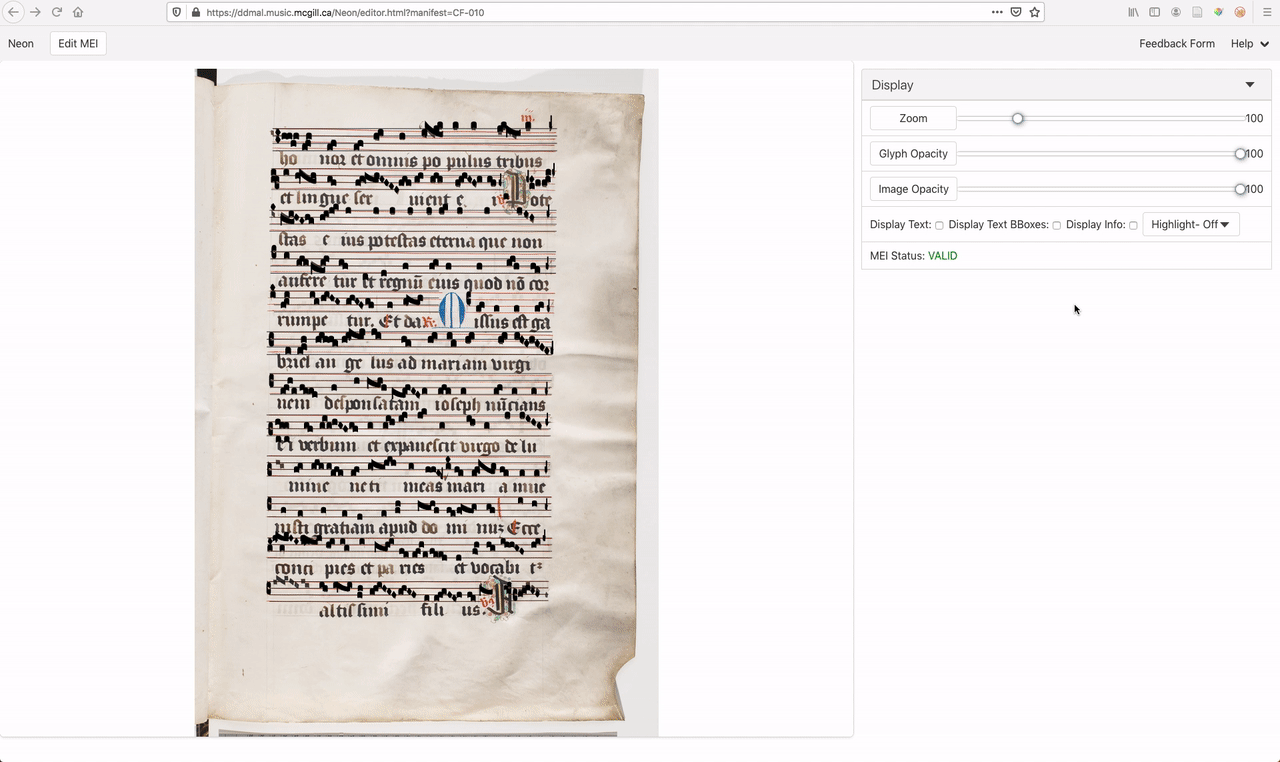 https://ddmal.music.mcgill.ca/Neon/editor.html?manifest=CF-010
Neon
Edit MEI
Feedback Form
Help
Display
Zoom
100
Glyph Opacity
100
Image Opacity
100
Display Text:
Display Text BBoxes:
Display Info:
Highlight- Off
MEI Status: VALID
ho nor et omnis po pulus tribus
et lingue ser uient e.
stas e ius potestas eterna que non
aufere tur Et regnū eius quod nō cor
rumpe tur. Et da issus est ga
briel an ge lus ad mariam virgi
nem desponsatam ioseph nūcians
verbum et expauescit virgo de lu
mine ne ti meas mari a inue
nisti gratiam apud do mi Ecce
conci pies et pa ries et vocabi
altissimi fili us.